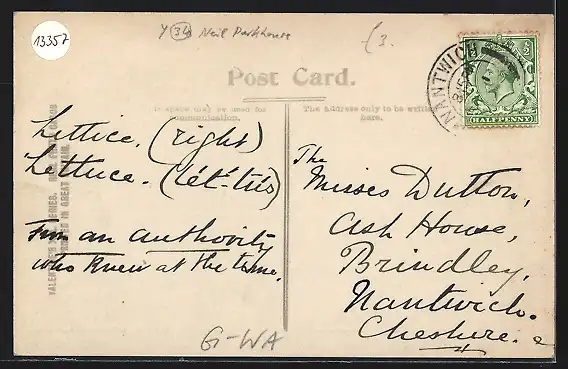 13357
Y 34 Neil Parkhouse
£3.
Post Card.
The space may be used for
communication.
The Address only to be written
here.
NANTWICH
HALFPENNY
Lettice. (right)
Lettuce. (lét-tis)
From an authority
who knew at the time.
The
Misses Dutton,
Ash House,
Brindley,
Nantwich.
Cheshire.
GI-WA
PRINTED IN GREAT BRITAIN.